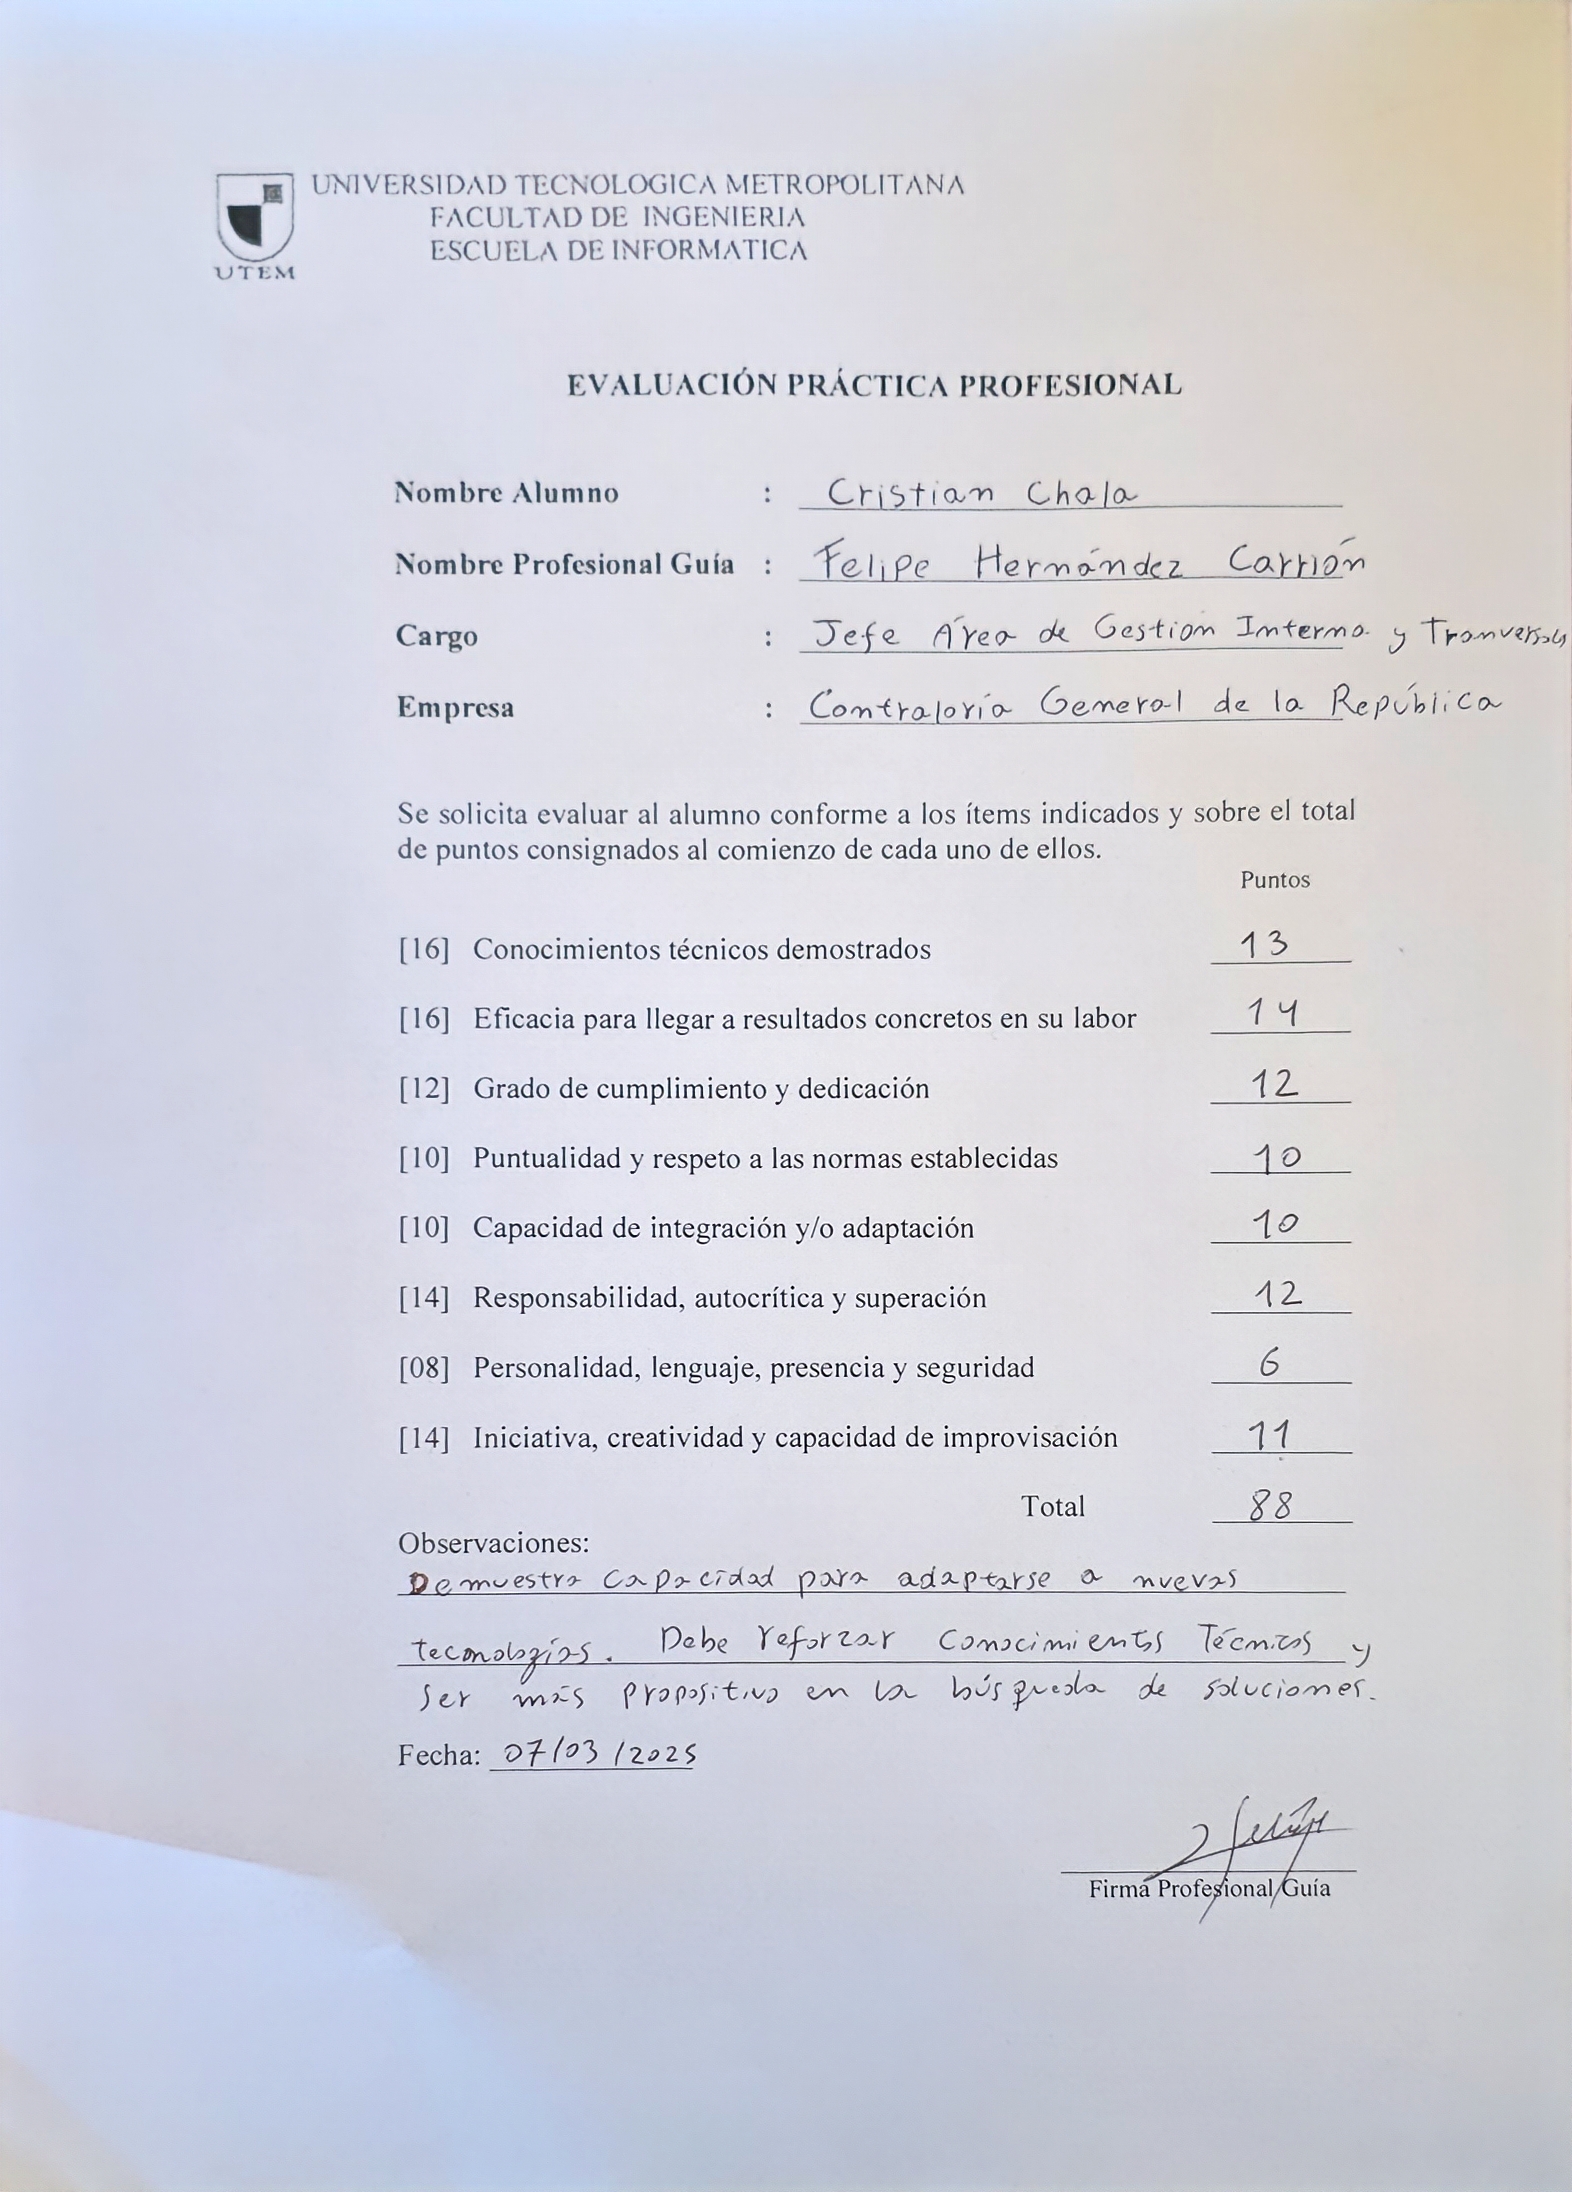 UNIVERSIDAD TECNOLOGICA METROPOLITANA
FACULTAD DE INGENIERIA
ESCUELA DE INFORMATICA
UTEM
EVALUACIÓN PRÁCTICA PROFESIONAL
Nombre Alumno : Cristian Chala
Nombre Profesional Guía : Felipe Hernández Carrión
Cargo : Jefe Área de Gestion Interna y
Empresa : Contraloría General de la República
Se solicita evaluar al alumno conforme a los ítems indicados y sobre el total
de puntos consignados al comienzo de cada uno de ellos.
Puntos
[16] Conocimientos técnicos demostrados 13
[16] Eficacia para llegar a resultados concretos en su labor 14
[12] Grado de cumplimiento y dedicación 12
[10] Puntualidad y respeto a las normas establecidas 10
[10] Capacidad de integración y/o adaptación 10
[14] Responsabilidad, autocrítica y superación 12
[08] Personalidad, lenguaje, presencia y seguridad 6
[14] Iniciativa, creatividad y capacidad de improvisación 11
Total 88
Observaciones:
Demuestra capacidad para adaptarse a nuevas
tecnologías. Debe reforzar Conocimientos Técnicos y
ser más propositivo en la búsqueda de soluciones.
Fecha: 07/03/2025
Firma Profesional Guía